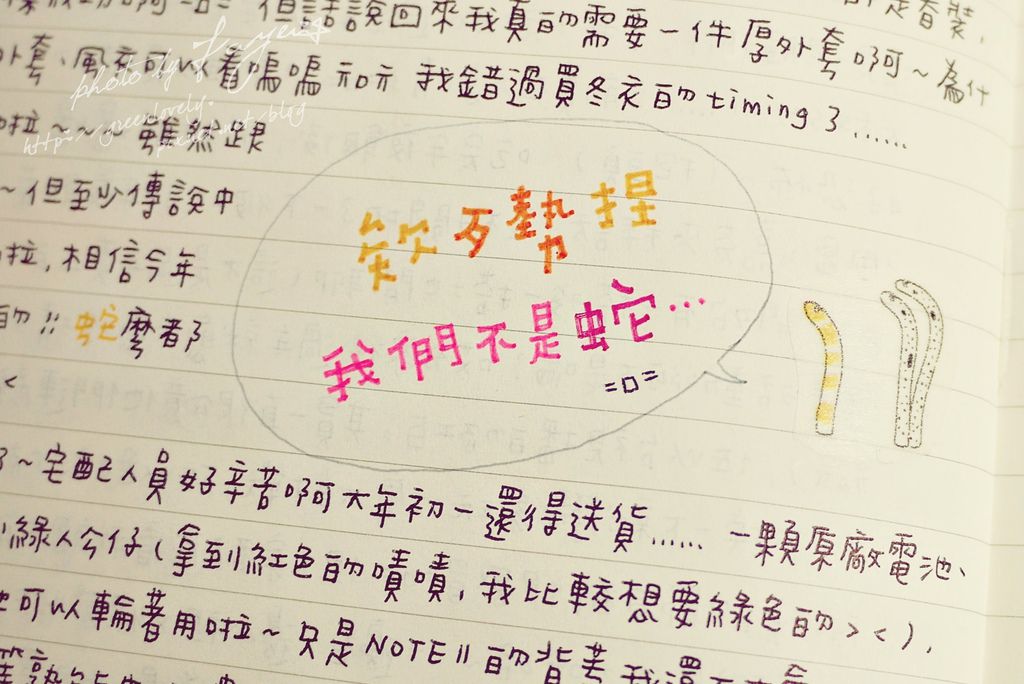 但話說回來我真的需要一件厚外套啊~為什
外套、風衣可以看嗚嗚 我錯過買冬衣的timing了......
啦~~~雖然跟
~但至少傳說中
啦,相信今年
的!!蛇麼都
歹勢捏
我們不是蛇...
=口=
~宅配人員好辛苦啊大年初一還得送貨......一顆原廠電池、
綠人公仔(拿到紅色的嘖嘖,我比較想要綠色的><),
可以輪著用啦~只是NOTE II的背
photo by Fayeis
http://greenlovely.
pixnet.net/blog